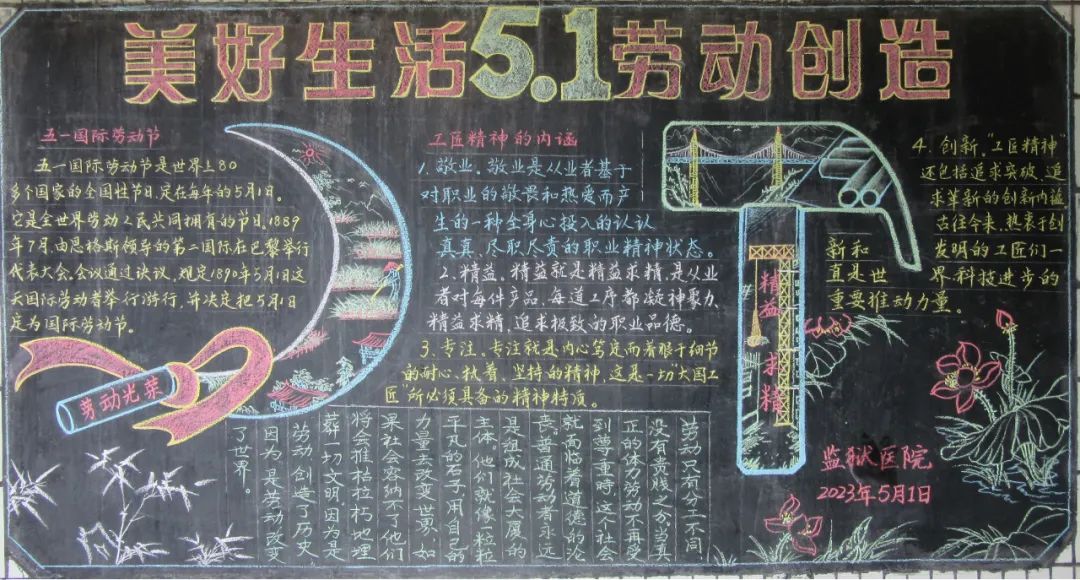 美好生活5.1劳动创造
五一国际劳动节
五一国际劳动节是世界上80
多个国家的全国性节日,定在每年的5月1日。
它是全世界劳动人民共同拥有的节日。1889
年7月,由恩格斯领导的第二国际在巴黎举行
代表大会,会议通过决议,规定1890年5月1日这
天国际劳动者举行游行,并决定把5月1日
定为国际劳动节。
劳动光荣
工匠精神的内涵
1、敬业。敬业是从业者基于
对职业的敬畏和热爱而产
生的一种全身心投入的认认
真真、尽职尽责的职业精神状态。
2、精益。精益就是精益求精,是从业
者对每件产品、每道工序都凝神聚力、
精益求精、追求极致的职业品德。
3、专注。专注就是内心笃定而着眼于细节
的耐心、执着、坚持的精神,这是一切"大国工
匠"所必须具备的精神特质。
精益求精
4、创新。"工匠精神"
还包括追求突破、追
求革新的创新内蕴
古往今来,热衷于创
新和发明的工匠们一
直是世界科技进步的
重要推动力量。
劳动只有分工不同,
没有贵贱之分,当真
正的体力劳动不再受
到尊重时,这个社会
就面临着道德的沦
丧。普通劳动者永远
是组成社会大厦的
主体。他们就像一粒粒
平凡的石子,用自己的
力量去改变世界,如
果社会容纳不了他们
将会摧枯拉朽地埋
葬一切文明,因为是
劳动创造了历史
因为是劳动改变
了世界。
监狱医院
2023年5月1日